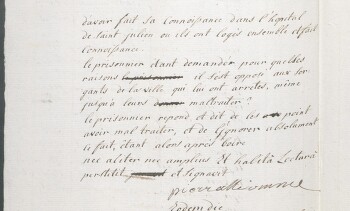 davoir fait sa Connoissance dans l'hôpital
de saint julien ou ils ont logés ensemble et fait
Connoissance.
le prisonnier étant demander pour quelles
raisons il s'est opposé aux ser
gants de la ville qui lui ont arretés, même
jusqu'a leurs maltraiter?
le prisonnier repond et dit de les point
avoir mal traiter, et de Gynorer absolument
ce fait, étant alors après boire
nec aliter nec amplius Et habita Lectura
perstitit et signavit
pierre
Eodem die